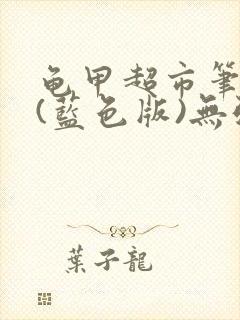 龜甲超市筆
(藍色版)無
葉子龍